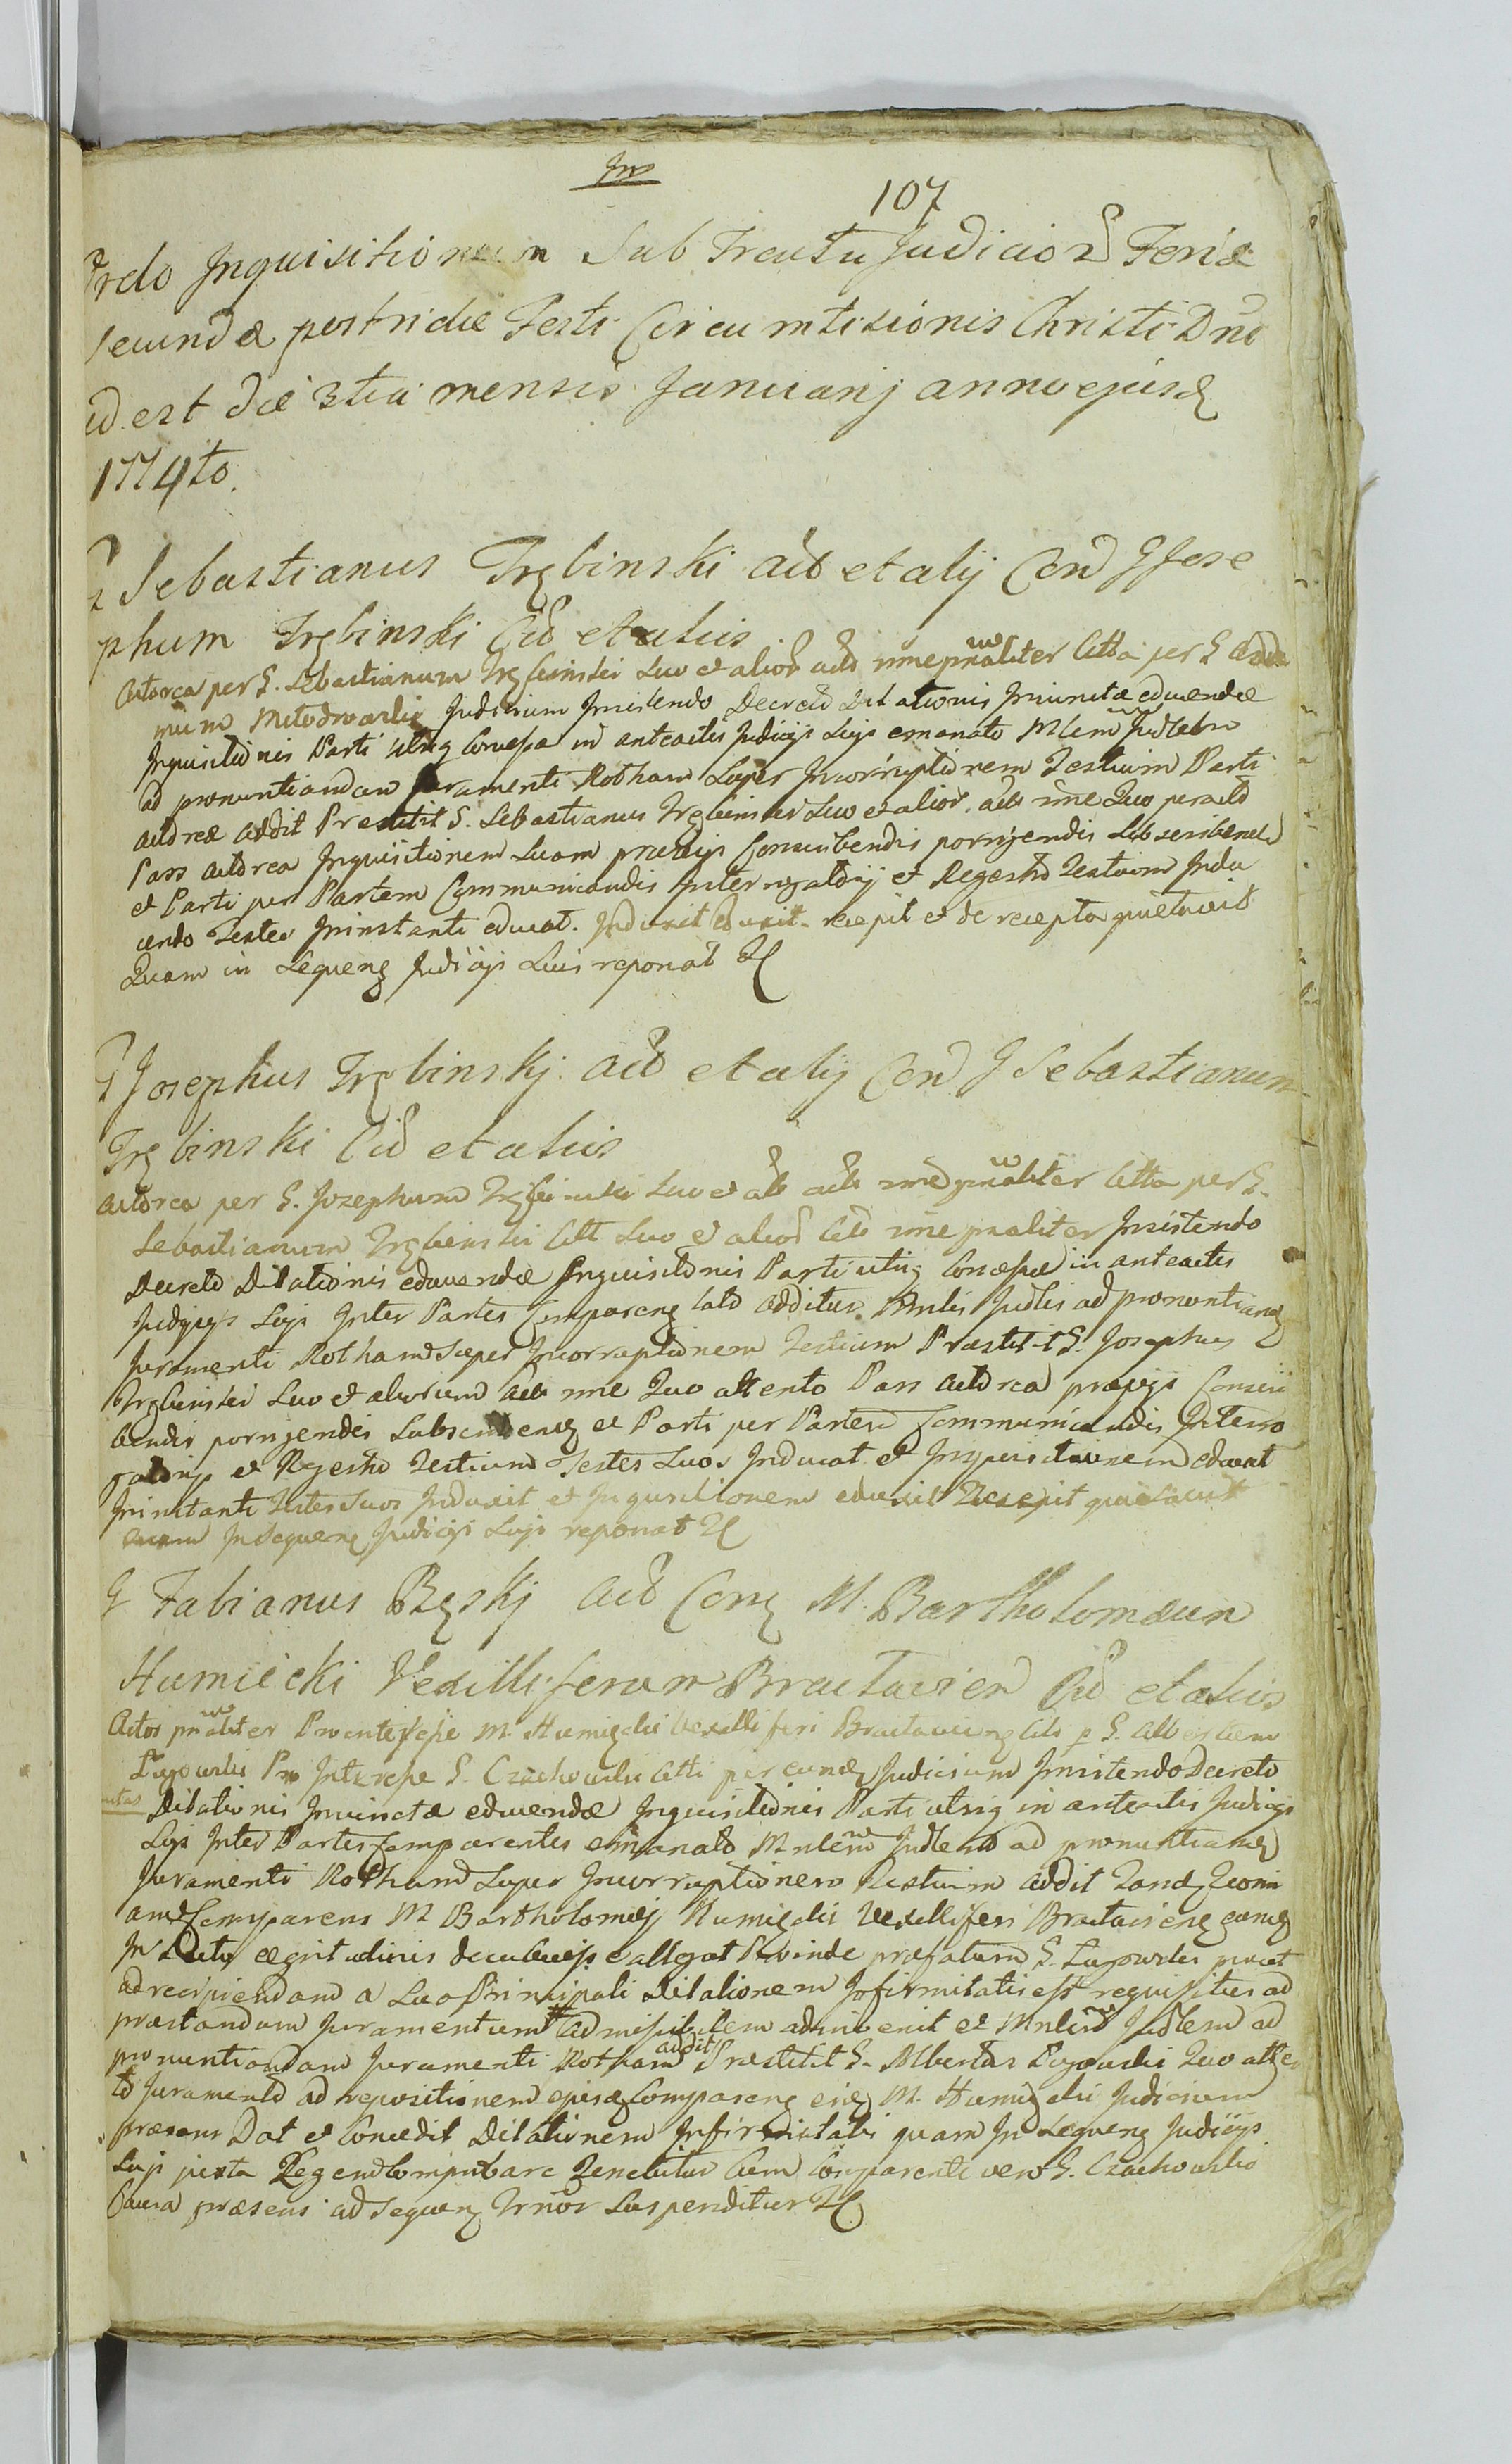 107
Ordo Inquisitionum Sub Tractu Judicior Feriæ
Secundæ postridie Festi Circumtisionis Christi Dni
id est die 3tia mensis Januarij anno ejusd
1774to.
G Sebastianus Trębinski Act et alij Con G Jose
phum Trębinski Cit et alios
Actorea per G. Sebastianum Trębinski Suo et alior acto nne pnaliter Citta per G
Judicium Insistendo Decreto Dilationis Iniunctæ educendæ
Inquisitionis Parti utriq Concessa in anteactis Judicijs Sujs emanato Mlem Judlem
ad pronuntiandam Juramenti Rotham Super Incorruptionem Testium Parti
actoreæ addit Præstitit G. Sebastianus Trębinski Suo et alior. acto nne Quo peracto
Pars actorea Inquisitionem Suam prævijs Conscribendis porrigendis Subscribend
et Parti per Partem Communicandis Interrogatorij et Regestro Testium Indu
cendo Testes Ininstanti educat. Induxit Eduxit recepit et de recepta quietavit
Quam in Sequenz Judicijs Suis reponat
G Josephus Trębinskj Act et alij Con G Sebastianum
Trębinski Cit et alios
Actorea per G. Josephum Trębinski Suo et alior acto nne pnaliter Citta per G.
Sebastianum Trębinski Citt Suo et alior Cito nne pnaliter Insistendo
Decreto Dilationis educendæ Inquisitionis Parti utriq Concessæ in anteactis
Judicijs Sujs Inter Partes Comparenz lato additur Mnlis Judlis ad pronuntiand
Juramenti Rotham Super Incorruptionem Testium Præstitit G. Josephus
Trębinski Suo et aliorum acto nne Quo attento Pars Actorea prævijs Conscri
bendis porrigendis Subscribenz et Parti per Partem Communicandis Interro
gatorijs et Regestro Testium Testes Suos Inducat et Inquisitionem educat
Ininstanti Testes Suos Induxit et Inquisitionem eduxit Recepit quietavit
In Sequenz Judicijs Sujs reponat
G Fabianus Bęskj Act Conz M. Bartholomæum
Humiecki Vexilliferum Bractavien Cit et alios
Actor pnaliter Pro M. Humięcki Vexilliferi Bractavienz Citi p G. Albertum
Pro G. Czachowski Citti per eumd Judicium Insistendo Decreto
Dilationis Iniunctæ educendæ Inquisitionis Parti utriq in anteactis Judicijs
Sujs Inter Partes Comparentes emanato Mnlem Judlem ad pronuntiand
Juramenti Rotham Super Incorruptionem Testium addit
Comparens M Bartholomæj Humięcki Vexilliferi Bractavienz eumd
In Lecto ægritudinis decubuisse allegat Proinde præfatum G.
ad recipiendam a Suo Principali Dilationem Infirmitatis est requisitus ad
præstandum Juramentum Admissibilem adinvenit et Mnlem Judlem ad
pronuntiandam Juramenti Rotham addit Præstitit G. Albertus Quo atten
to Juramento ad repositionem ejusd Comparenz M. Humięcki Judicium
præsens Dat et Concedit Dilationem Infirmitatis quam In Sequenz Judicijs
Sujs juxta Legem Comprobare Tenebitur Cum Comparente vero G. Czachowskio
Causa præsens ad Sequenz Trnos Suspenditur